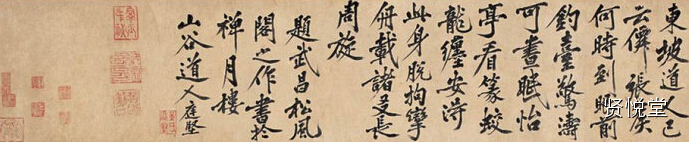 東坡道人已
云僊張侯
何時到眼前
釣臺驚濤
可晝眠怡
亭看篆蛟
龍纏安得
此身脫拘攣
舟載諸友長
周旋
題武昌松風
閣之作書於
禪月樓
山谷道人庭堅
贤悦堂